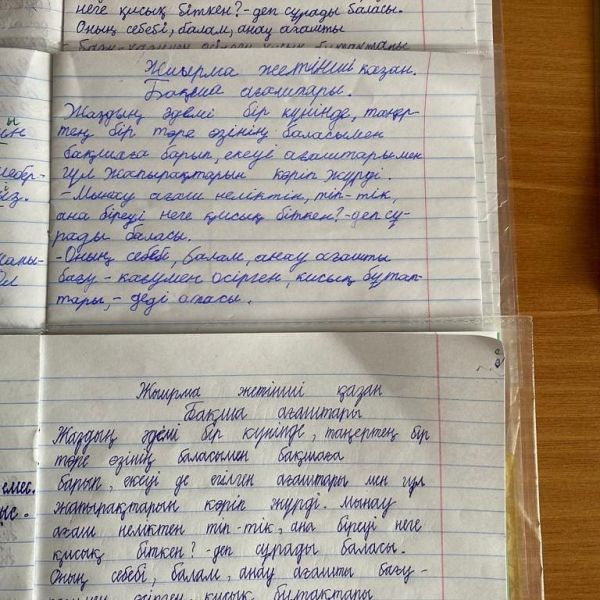 неге қисық біткен? - деп сұрады баласы.
Оның себебі, балам, анау ағашты
бағу-кағумен өсірген, қисық бұтақтары
Жиырма жетінші қазан.
Бақша ағаштары.
Жаздың әдемі бір күнінде, таңер-
тең бір төре өзінің баласымен
бақшаға барып, екеуі ағаштары мен
гүл жапырақтарын көріп жүрді.
- Мынау ағаш неліктін, тіп-тік,
ана біреуі неге қисық біткен? - деп сұ-
рады баласы.
- Оның себебі, балам, анау ағашты
бағу - кағумен өсірген, кисық бұтақ-
тары, - деді апасы.
Жиырма жетінші қазан
Бақша ағаштары
Жаздың әдемі бір күнінде, таңертең бір
төре өзінің баласымен бақшаға
барып, екеуі де егілген ағаштары мен гүл
жапырақтарын көріп жүрді. Мынау
ағаш неліктен тіп-тік, ана біреуі неге
қисық біткен? - деп сұрады баласы.
Оның себебі, балам, анау ағашты бағу-
өсірген, қисық бұтақтары